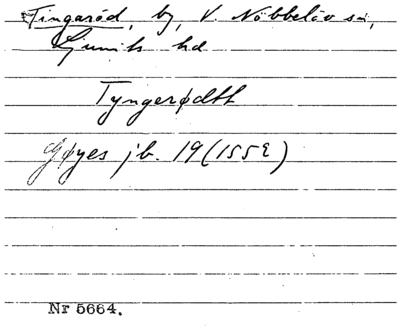 Tingaröd, by, V. Nöbbelöv sn,
Ljunits hd
Tyngerødtt
Gøyes jb. 19 (1552)
Nr 5664.